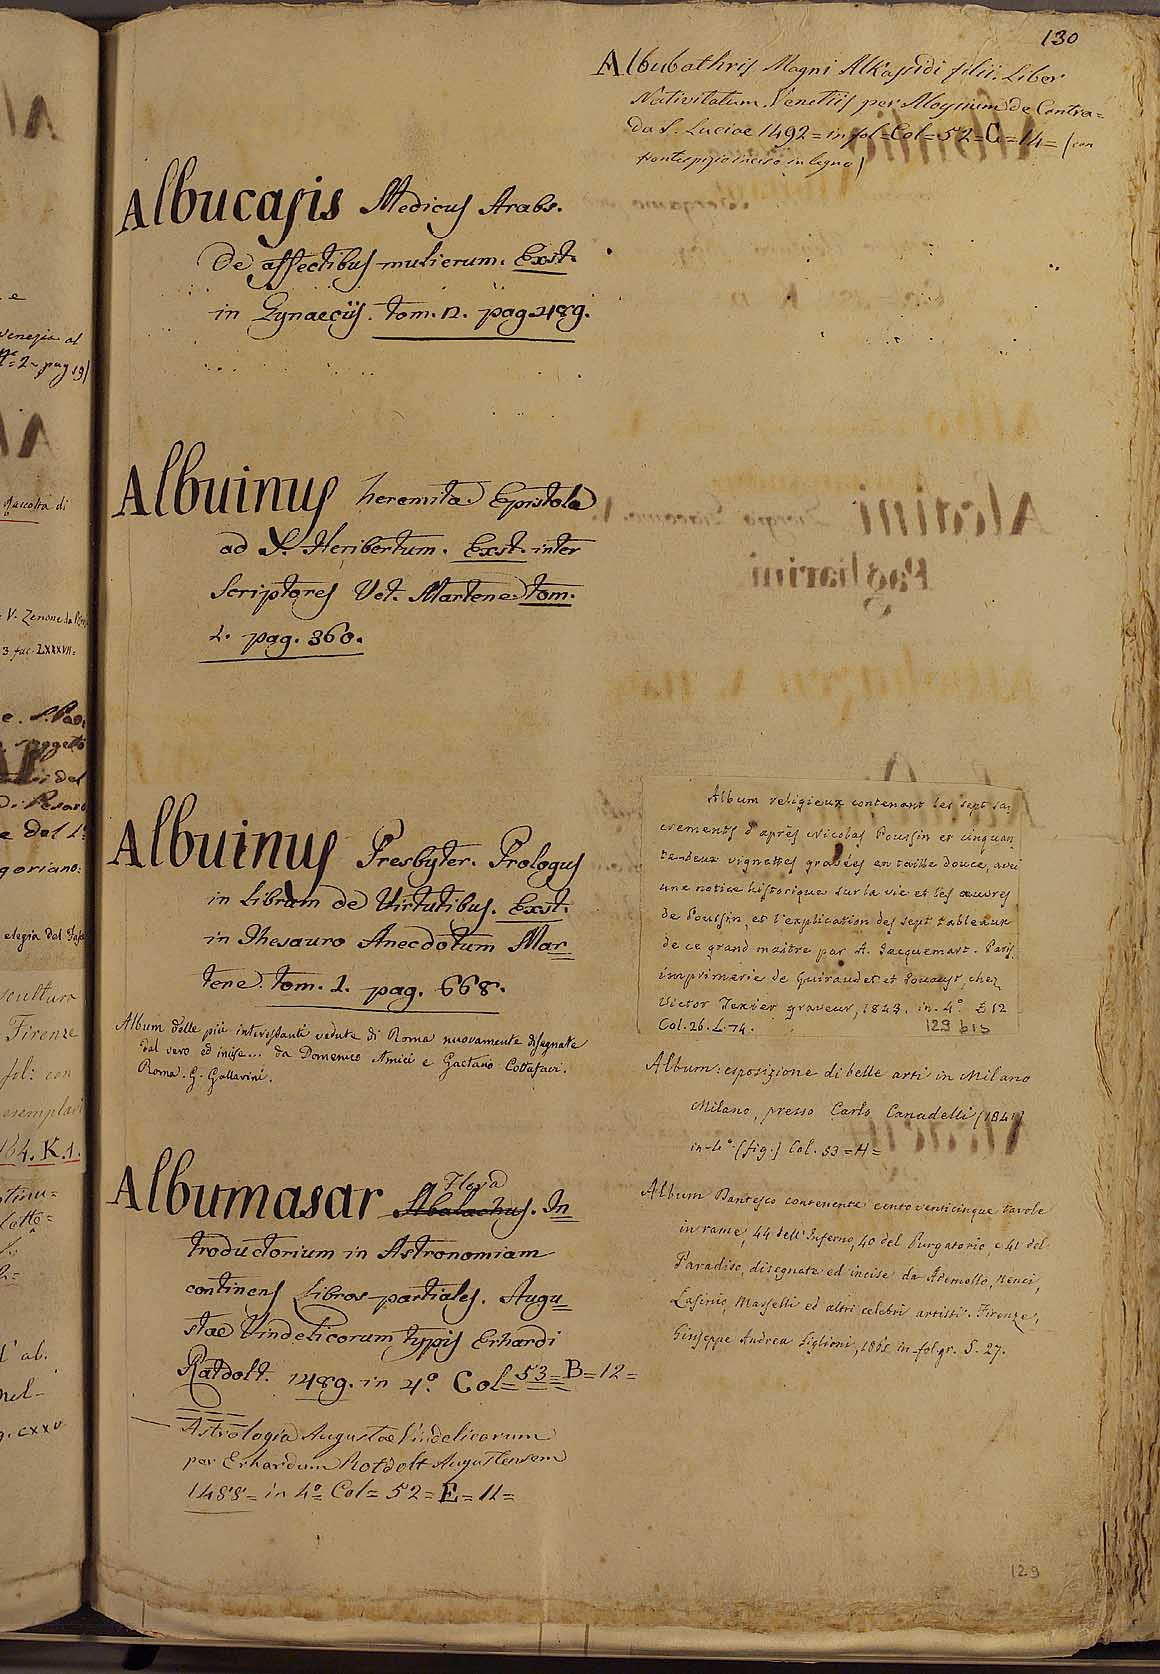 130
Albubathris Magni Alkasidi filii. Liber
Nativitatum. Venetiis per Aloysium de Contra=
da S. Luciae 1492 = in fol = Col = 52 = C = 14 = (con
frontespizio inciso in legno)
Albucasis Medicus Arabs.
De affectibus mulierum. Exst.
in Gynaeciis. tom. 12. pag. 489.
Albuinus heremita. Epistola
ad S. Heribertum. Exst. inter
Scriptores Vet. Martene. tom.
1. pag. 360.
Albuinus Presbyter. Prologus
in Librum de Virtutibus. Exst.
in Thesauro Anecdotum Mar=
tene. tom. 1. pag. 668.
Album delle più interessanti vedute di Roma nuovamente disegnate
dal vero ed incise... da Domenico Amici e Gaetano Cottafavi.
Roma. G. Gallarini.
Albumasar Abalachus. In=
troductorium in Astronomiam
continens Libros partiales. Augu=
stae Vindelicorum typis Erhardi
Ratdolt. 1489. in 4º. Col = 53 = B = 12 =
Astrologia Augustae Vindelicorum
per Erhardum Ratdolt Augustensem
1488 = in 4º = Col = 52 = E = 11 =
Album religieux contenant les sept sa
crements d'après Nicolas Poussin et cinquan
te-deux vignettes gravées en taille douce, avec
une notice historique sur la vie et les œuvres
de Poussin, et l'explication des sept tableaux
de ce grand maitre par A. Jacquemart. Paris
imprimerie de Guiraudet et Jouaust, chez
Victor Texier graveur, 1843. in-4º. E 12
Col. 26. L. 74.
129 bis
Album: esposizione di belle arti in Milano
Milano, presso Carlo Canadelli (184
in-4º (fig.) Col. 53 = H =
Album Dantesco contenente cento venticinque tavole
in rame, 44 dell'Inferno, 40 del Purgatorio, e 41 del
Paradiso, disegnate ed incise da Ademollo, Nenci,
Lasinio, Masselli ed altri celebri artisti. Firenze,
Giuseppe Andrea 186 in-fol. gr. S. 27.
129